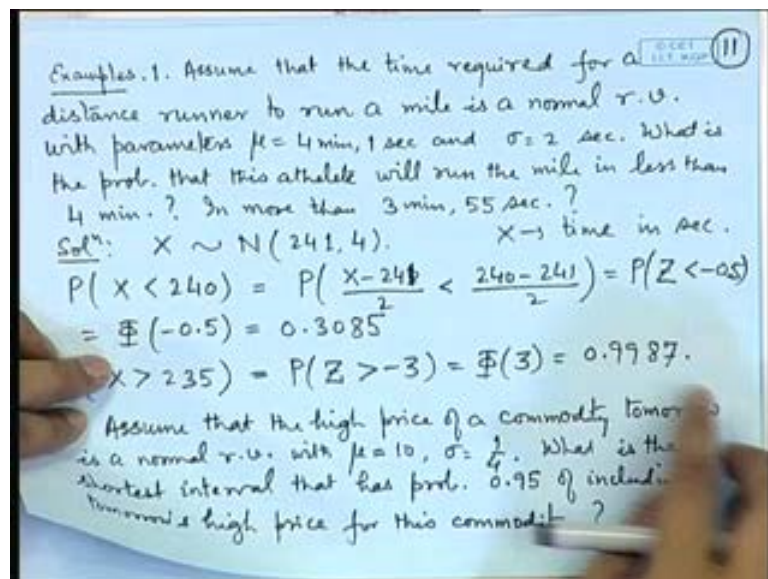 Examples. 1. Assume that the time required for a
11
distance runner to run a mile is a normal r.v.
with parameters μ = 4 min, 1 sec and σ = 2 sec. What is
the prob. that this athelete will run the mile in less than
4 min.? In more than 3 min, 55 sec.?
Solⁿ: X ~ N(241, 4). X → time in sec.
P(X < 240) = P( (X-241)/2 < (240-241)/2 ) = P(Z < -0.5)
= Φ(-0.5) = 0.3085
X > 235) = P(Z > -3) = Φ(3) = 0.9987.
Assume that the high price of a commodity
is a normal r.v. with μ = 10, σ = 1/4. What is the
shortest interval that has prob. 0.95 of
tomorrow's high price for this commodity?